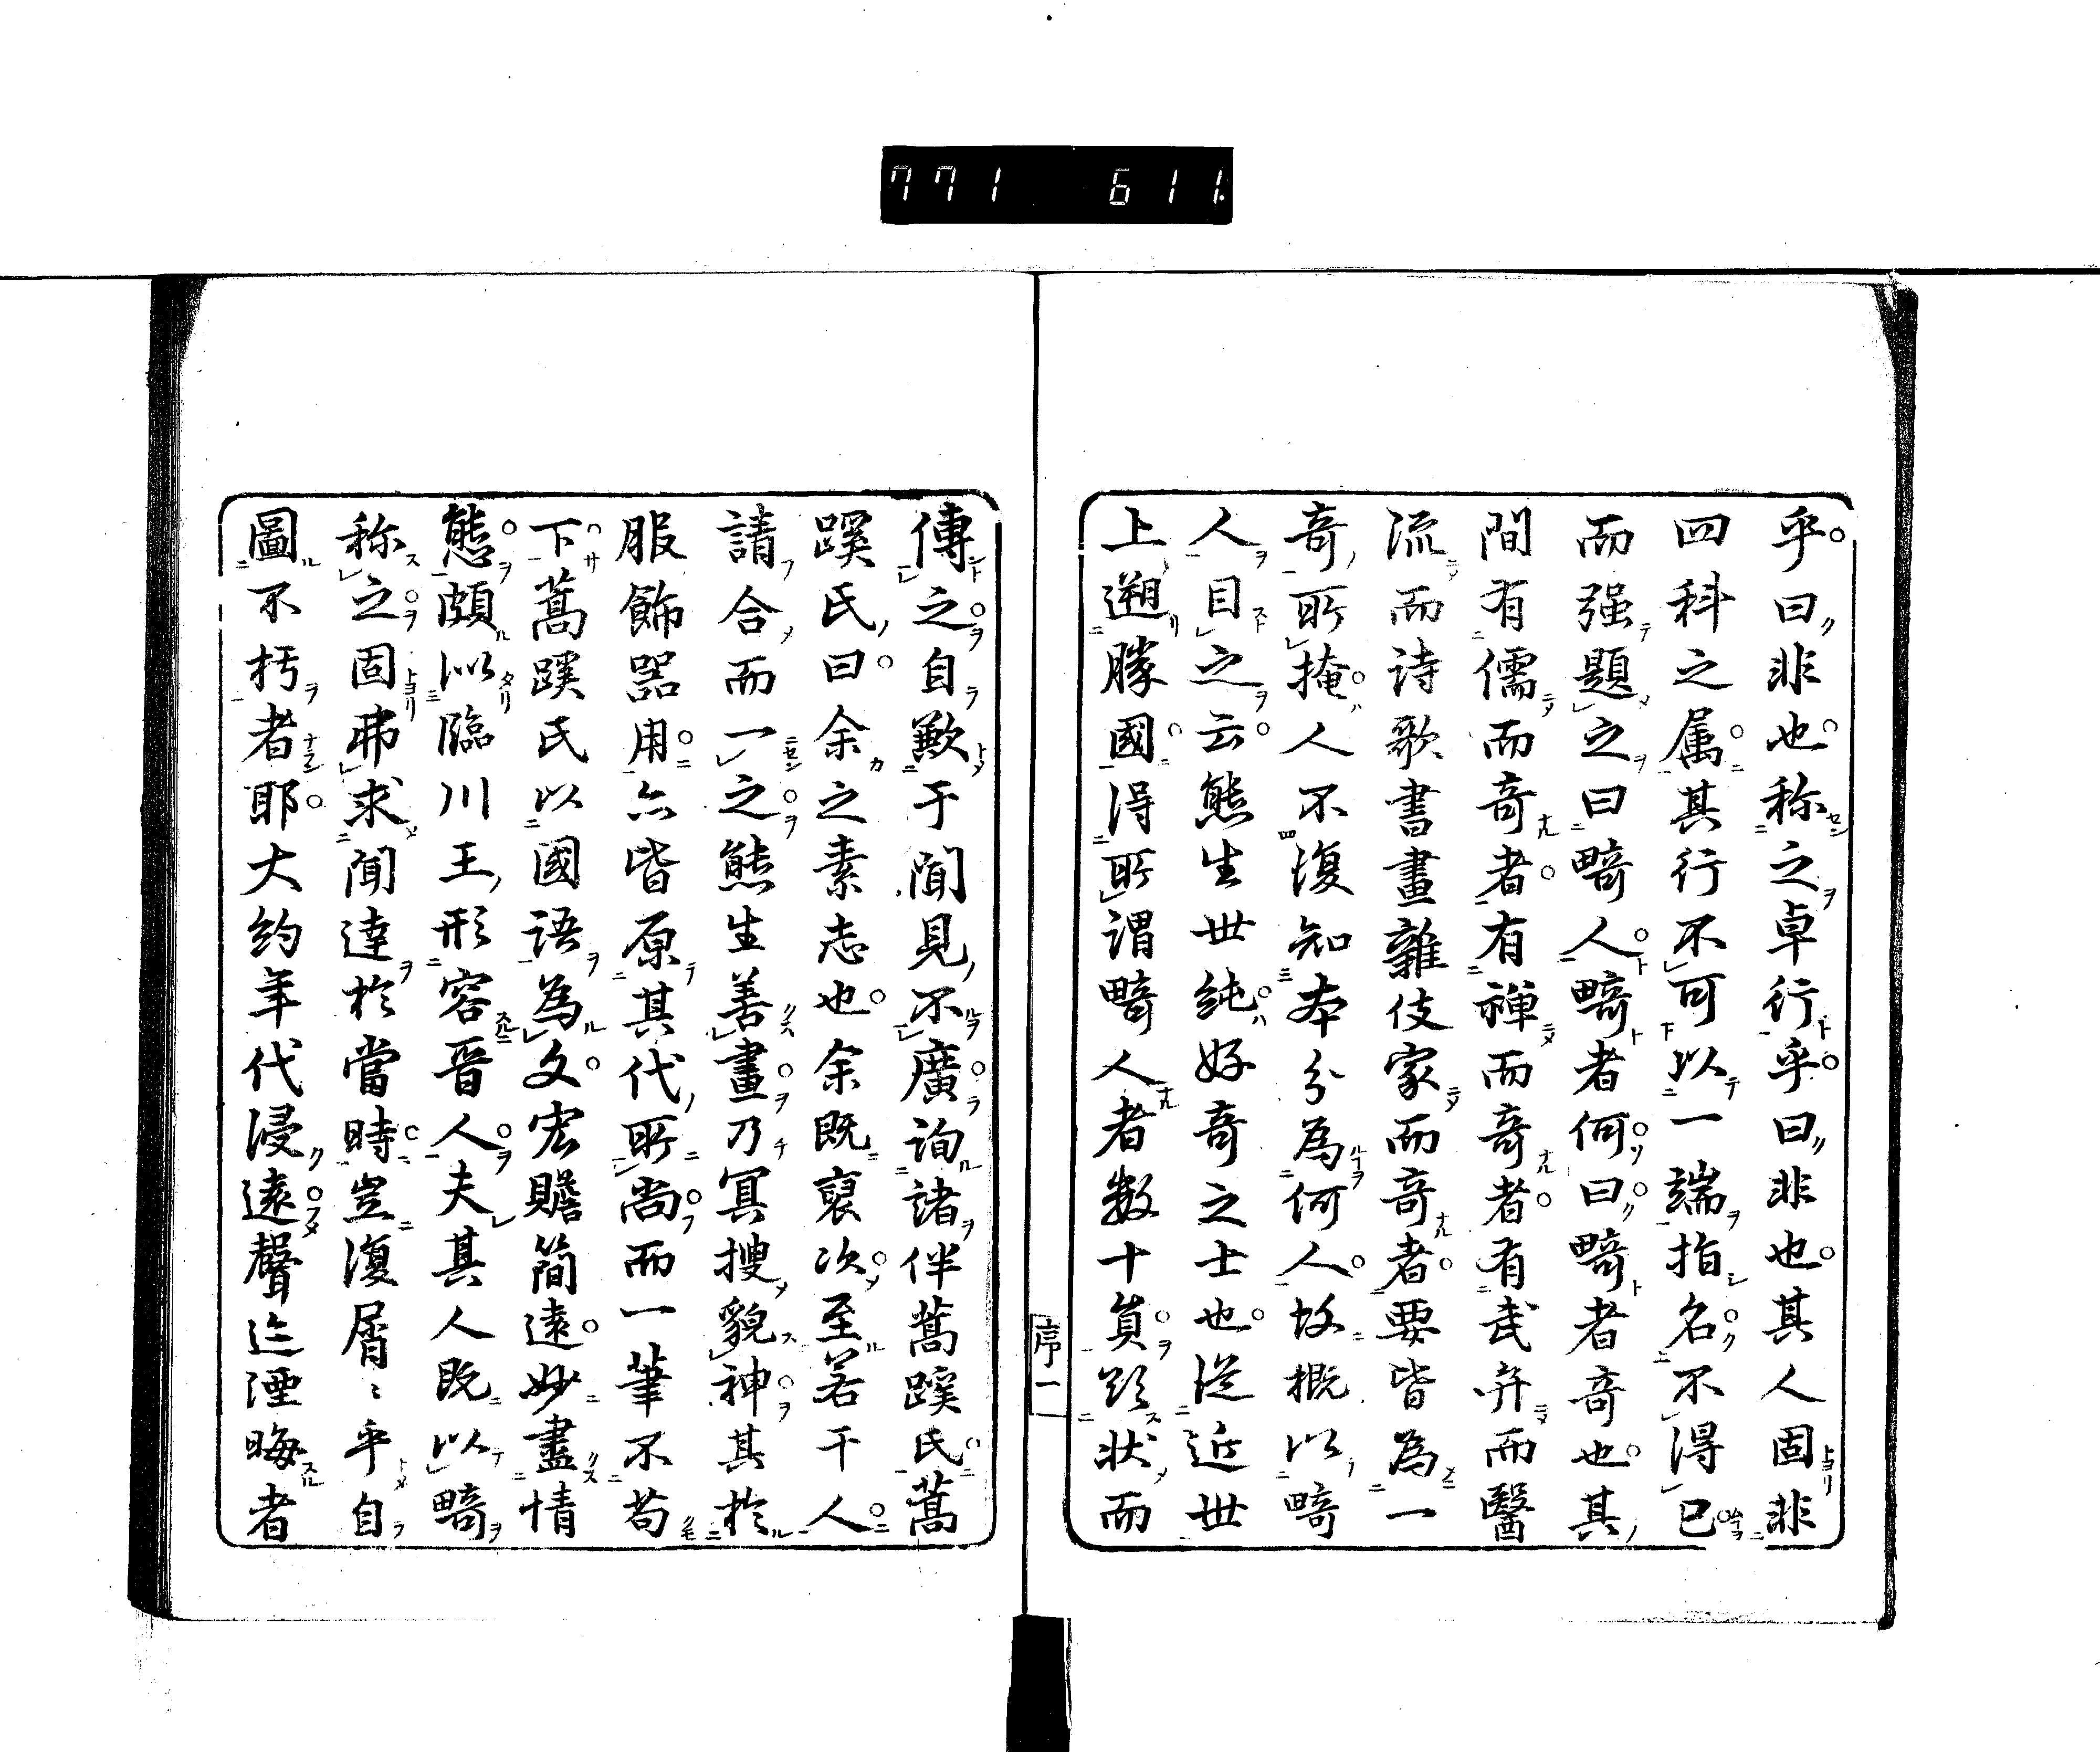 771 611
乎曰非也称之卓行乎曰非也其人固非
四科之属其行不可以一端指名不得已
而强題之曰畸人畸者何曰畸者奇也其
間有儒而奇者有禅而奇者有武弁而醫
流而詩歌書畫雜伎家而奇者要皆為一
奇所掩人不復知本分為何人故概以畸
人目之云熊生世純好奇之士也従近世
上遡勝國得所謂畸人者数十員状而
傳之自歉于聞見不廣詢諸伴蒿蹊氏蒿
蹊氏曰余之素志也余既裒次至若干人
請合而一之熊生善畫乃冥搜貌神其於
服飾器用亦皆原其代所尚而一筆不苟
下蒿蹊氏以國語為文宏贍簡遠妙盡情
態頗似臨川王形容晋人夫其人既以畸
称之固弗求聞達於當時豈復屑〻乎自
圖不朽者耶大約年代浸遠聲迹湮晦者
序一